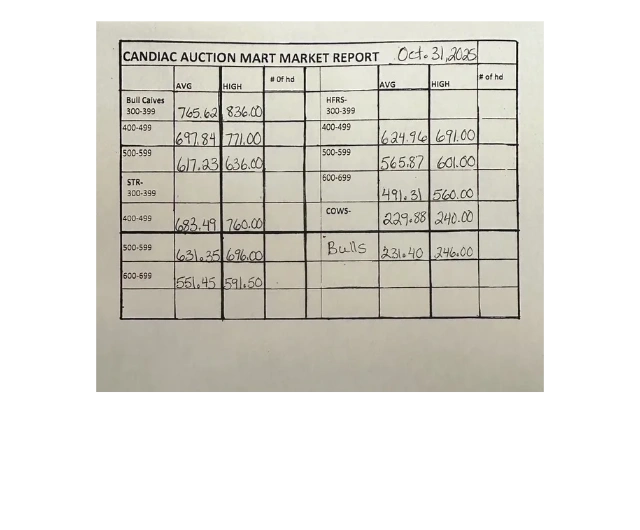 CANDIAC AUCTION MART MARKET REPORT Oct. 31, 2025
AVG HIGH # Of hd AVG HIGH # of hd
Bull Calves 300-399 765.62 836.00 HFRS- 300-399
400-499 697.84 771.00 400-499 624.96 691.00
500-599 617.23 636.00 500-599 565.87 601.00
STR- 300-399 600-699 491.31 560.00
400-499 683.49 760.00 COWS- 229.88 240.00
500-599 631.35 696.00 Bulls 231.40 246.00
600-699 551.45 591.50